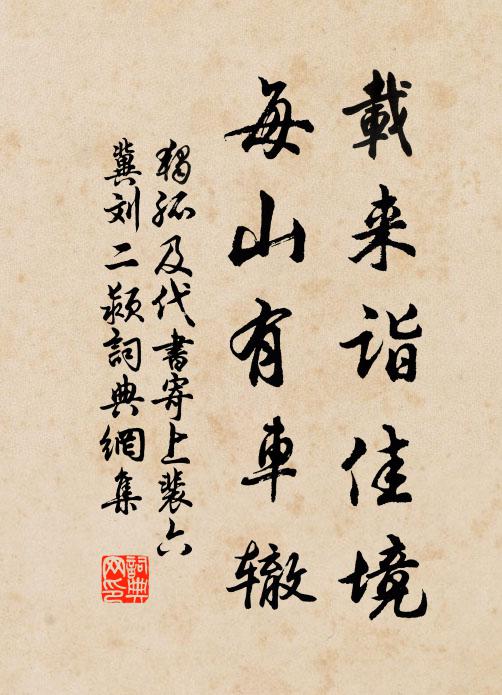 載来詣佳境
每山有車辙
獨孤及代書寄上裴六
冀刘二颖詞典網集
詞典
网印